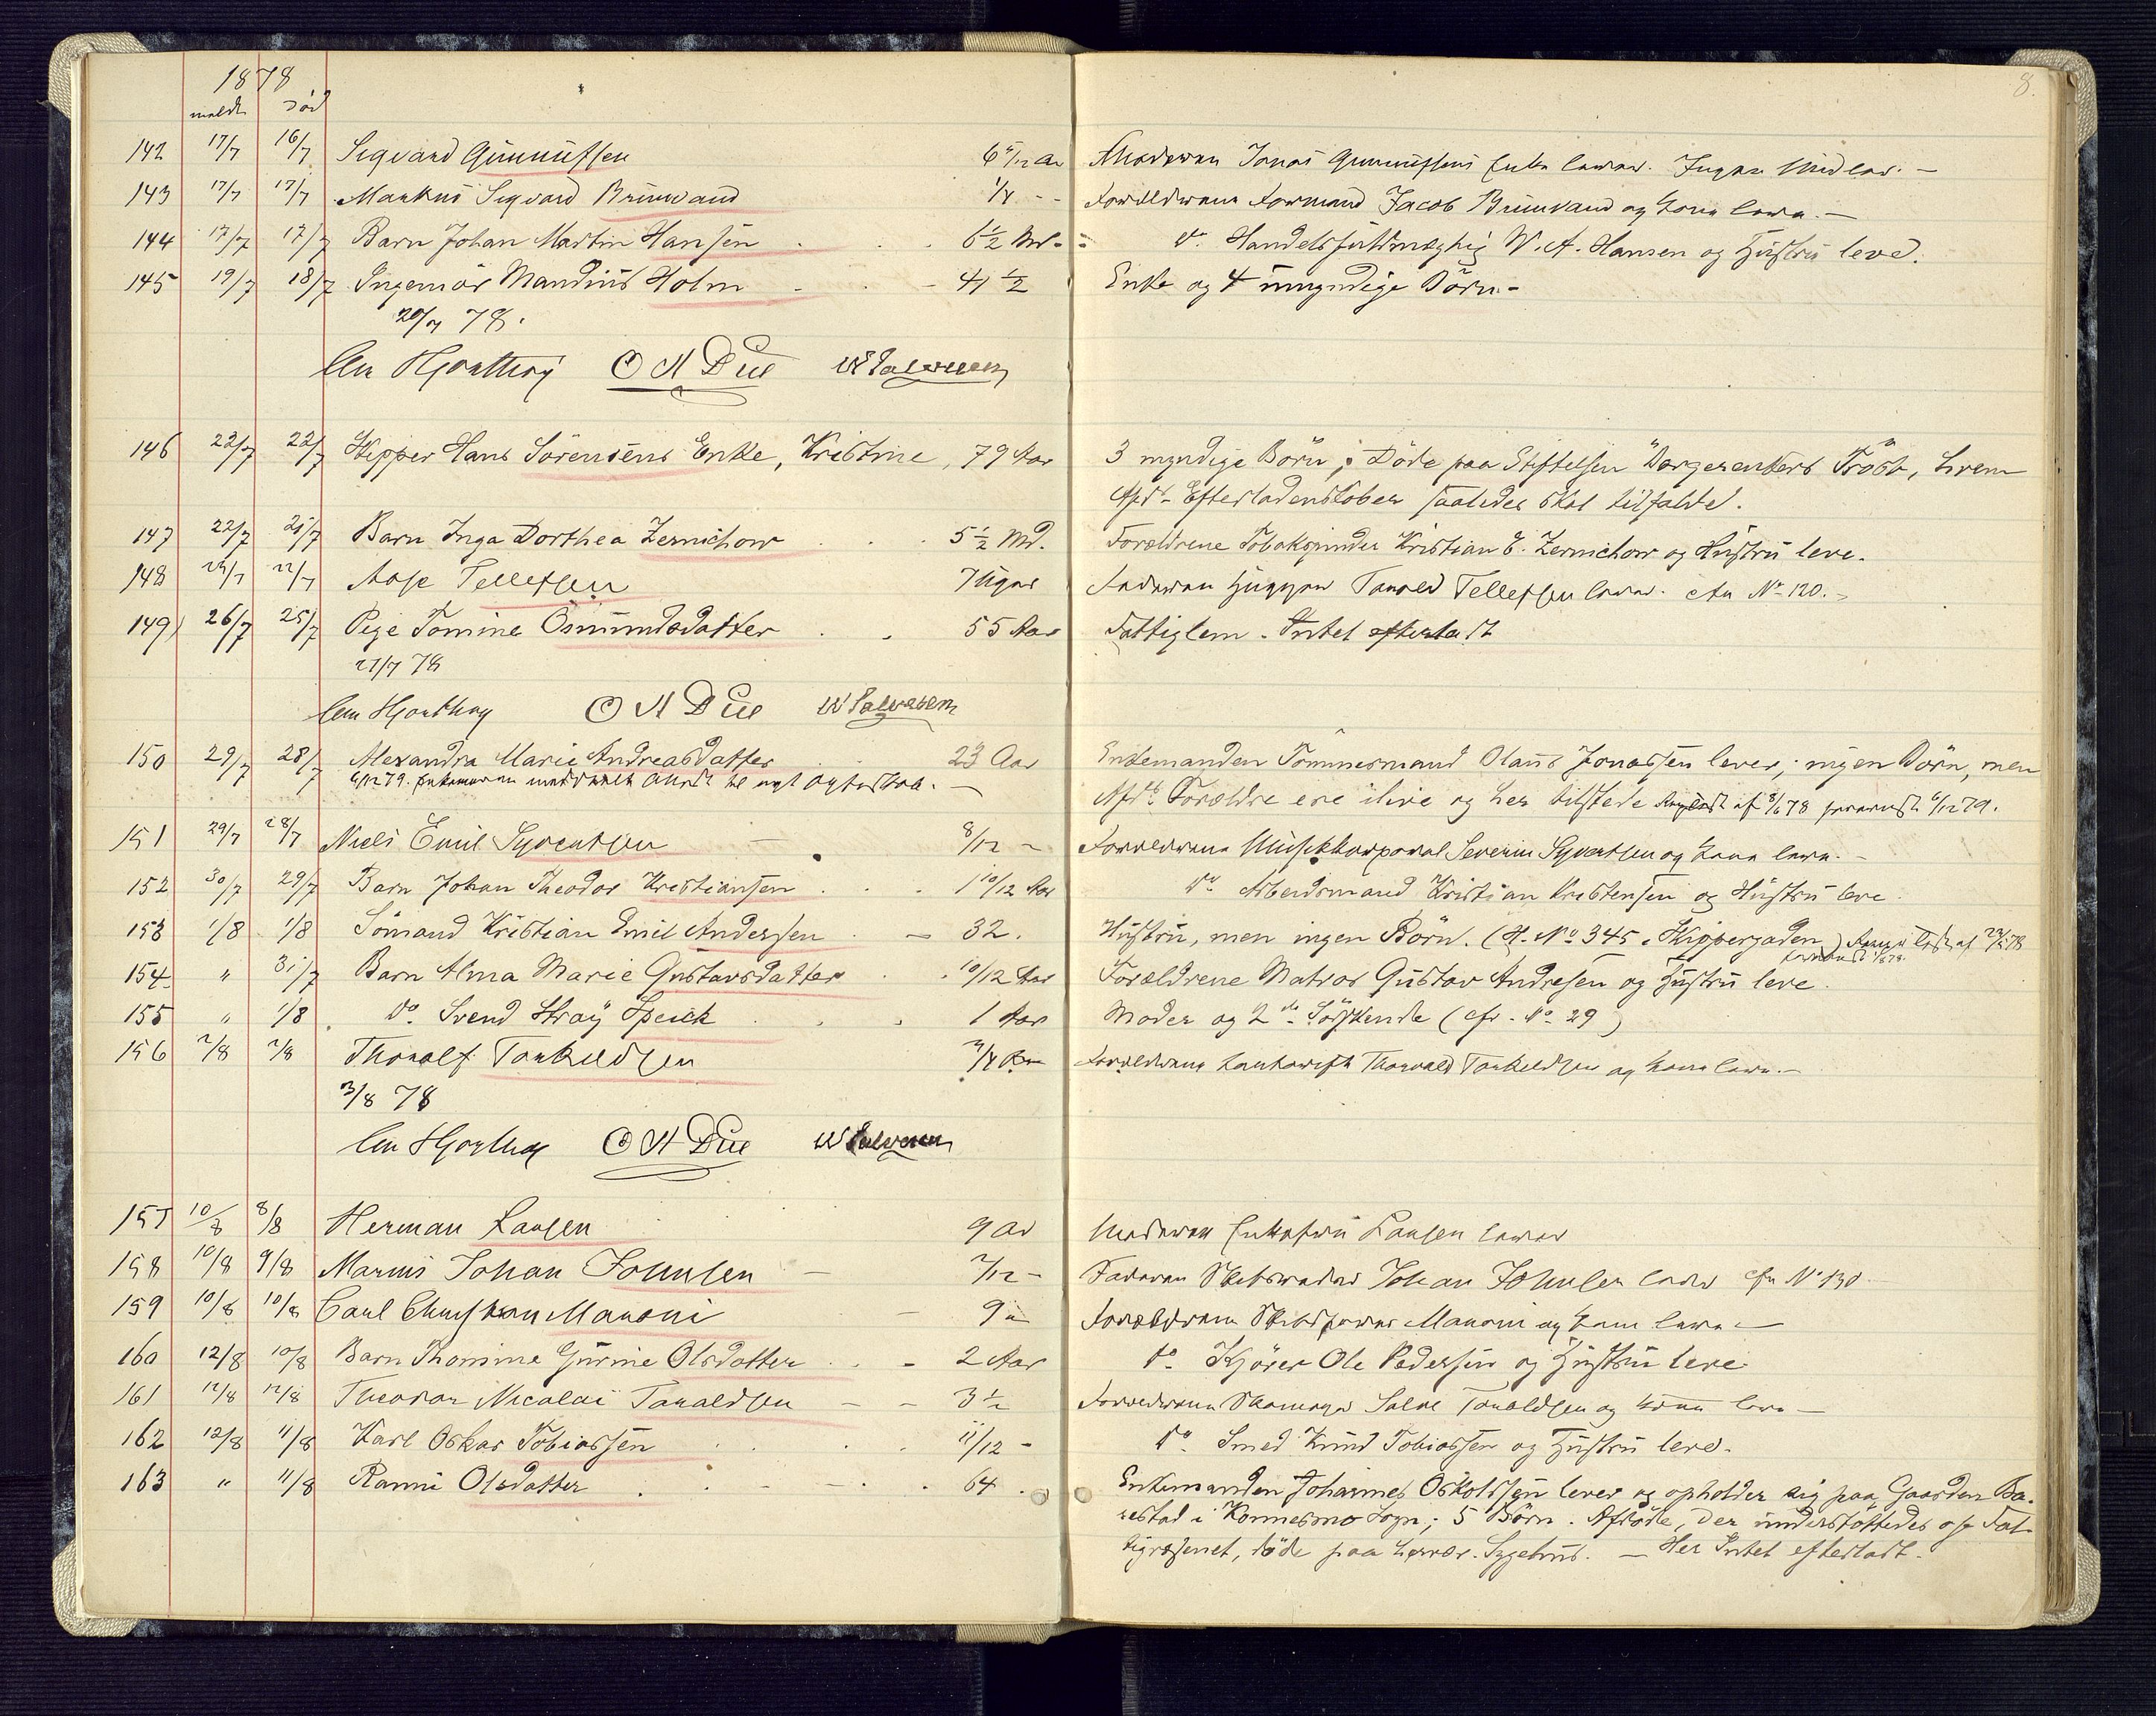 8.
1878
meldt död
142 17/7 16/7 Sigvard Gunnufsen 6 5/12 Ar Moderen Jonas Gunnufsens Enke lever. Ingen Midler. —
143 17/7 17/7 Markus Sigvard Brunvand 1/4 - - Forældrene Formand Jacob Brunvand og Kone leve. —
144 17/7 17/7 Barn Johan Martin Hansen 6 1/2 Md. do. Handelsfuldmægtig W. A. Hansen og Hustru leve.
145 19/7 18/7 Ingemar Mandius Holm 41 1/2 Enke og 4 umyndige Börn -
20/7 78.
Chr Hjorthøy O N Due W Salvesen
146 22/7 22/7 Skipper Hans Sörensens Enke, Kristine, 79 Aar 3 myndige Börn; Döde paa Stiftelsen Borgerenkers Tröst, hvem
Afd. Efterladenskaber saaledes skal tilfalde.
147 22/7 21/7 Barn Inga Dorthea Zernichow 5 1/2 Md. Forældrene Tobakspinder Kristian E. Zernichow og Hustru leve.
148 24/7 22/7 Aase Tellefsen 7 Uger Faderen Tarald Tellefsen lever. cfr No 120.
149 26/7 25/7 Pige Tomine Osmundsdatter 55 Aar Fattiglem. Intet efterladt
27/7 78
Chr Hjorthøy O N Due W Salvesen
150 29/7 28/7 Alexandra Marie Andreasdatter 23 Aar Enkemanden Tömmermand Olaus Jonassen lever; ingen Börn, men
6/12 79. Enkemanden meddelt Attest til nyt Ægteskab. —
Afd. Forældre ere ilive og her tilstede af 8/6 78 6/12 79.
151 29/7 28/7 Niels Emil Syvertsen — 8/12 - Forældrene Musikkorporal Severin Syvertsen og Kone leve. -
152 30/7 29/7 Barn Johan Theodor Kristiansen 1 10/12 Aar do. Arbeidsmand Kristian Kristensen og Hustru leve.
153 1/8 1/8 Sömand Kristian Emil Andersen — 32. Hustru, men ingen Börn. (H. No 345. Skippergaden)
154 " 31/7 Barn Alma Marie Gustavsdatter 10/12 Aar Forældrene Matros Gustav Andresen og Hustru leve.
155 " 1/8 do. Svend Stray Speick 1 Aar Moder og 2de Sødskende (cfr. No 29)
156 2/8 2/8 Thoralf Torkeldsen 3/4 Aar Forældrene Thorvald Torkeldsen og Kone leve. —
3/8 78
Chr Hjorthøy O N Due W Salvesen
157 10/8 8/8 Herman Larsen 9 Ar Moderen Enkefru Larsen lever
158 10/8 9/8 Marius Johan Johnsen — 7/12 - Faderen Skibsreder Johan Johnsen lever cfr No 130
159 10/8 10/8 Carl Christian Maroni — 9 Forældrene Maroni og Kone leve —
160 12/8 10/8 Barn Thomine Gurine Olsdatter - 2 Aar do. Kjörer Ole Pedersen og Hustru leve.
161 12/8 12/8 Theodor Nicolai Taraldsen - - 3 1/2 Forældrene Skomager Salve Taraldsen og Kone leve —
162 12/8 11/8 Karl Oskar Tobiassen 11/12 - do. Smed Knud Tobiassen og Hustru leve.
163 " 11/8 Ranni Olsdatter 64. Enkemanden Johannes Oskolsen lever og opholder sig paa Gaarden Ba-
restad i Konnesmo Sogn; 5 Börn. Afdöde, der understöttedes af Fat-
tigvæsenet, döde paa herv. Sygehus. — Her Intet efterladt.